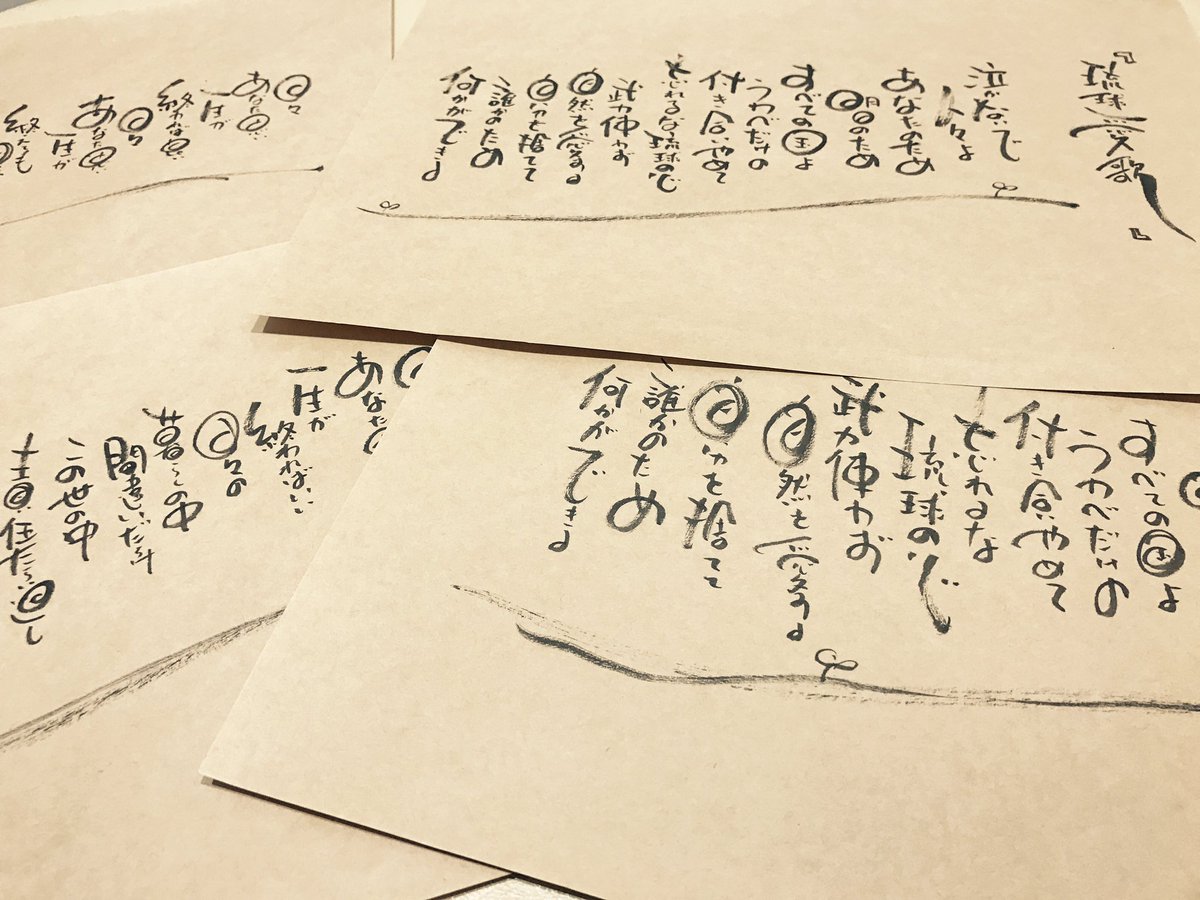 『琉球愛歌』
泣かないで
人々よ
あなたのため
明日のため
すべての国よ
うわべだけの
付き合いやめて
忘れるな琉球の心
武力使わず
自然を愛する
自分を捨てて
誰かのため
何かができる
日々
あなた思い
一生が
日々
あなた思い
一生が
すべての国よ
うわべだけの
付き合いやめて
忘れるな
琉球の心
武力使わず
自然を愛する
自分を捨てて
誰かのため
何かができる
あなた
一生が
終わればいい
日々の
暮らしの中
間違いだ
この世の中